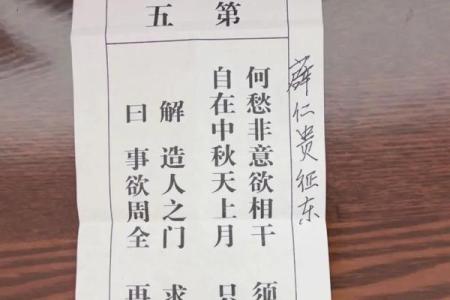 第五
薛仁贵征东
何愁非意欲相干 須
自在中秋天上月 只
解 造人之门 求
曰 事欲周全 再